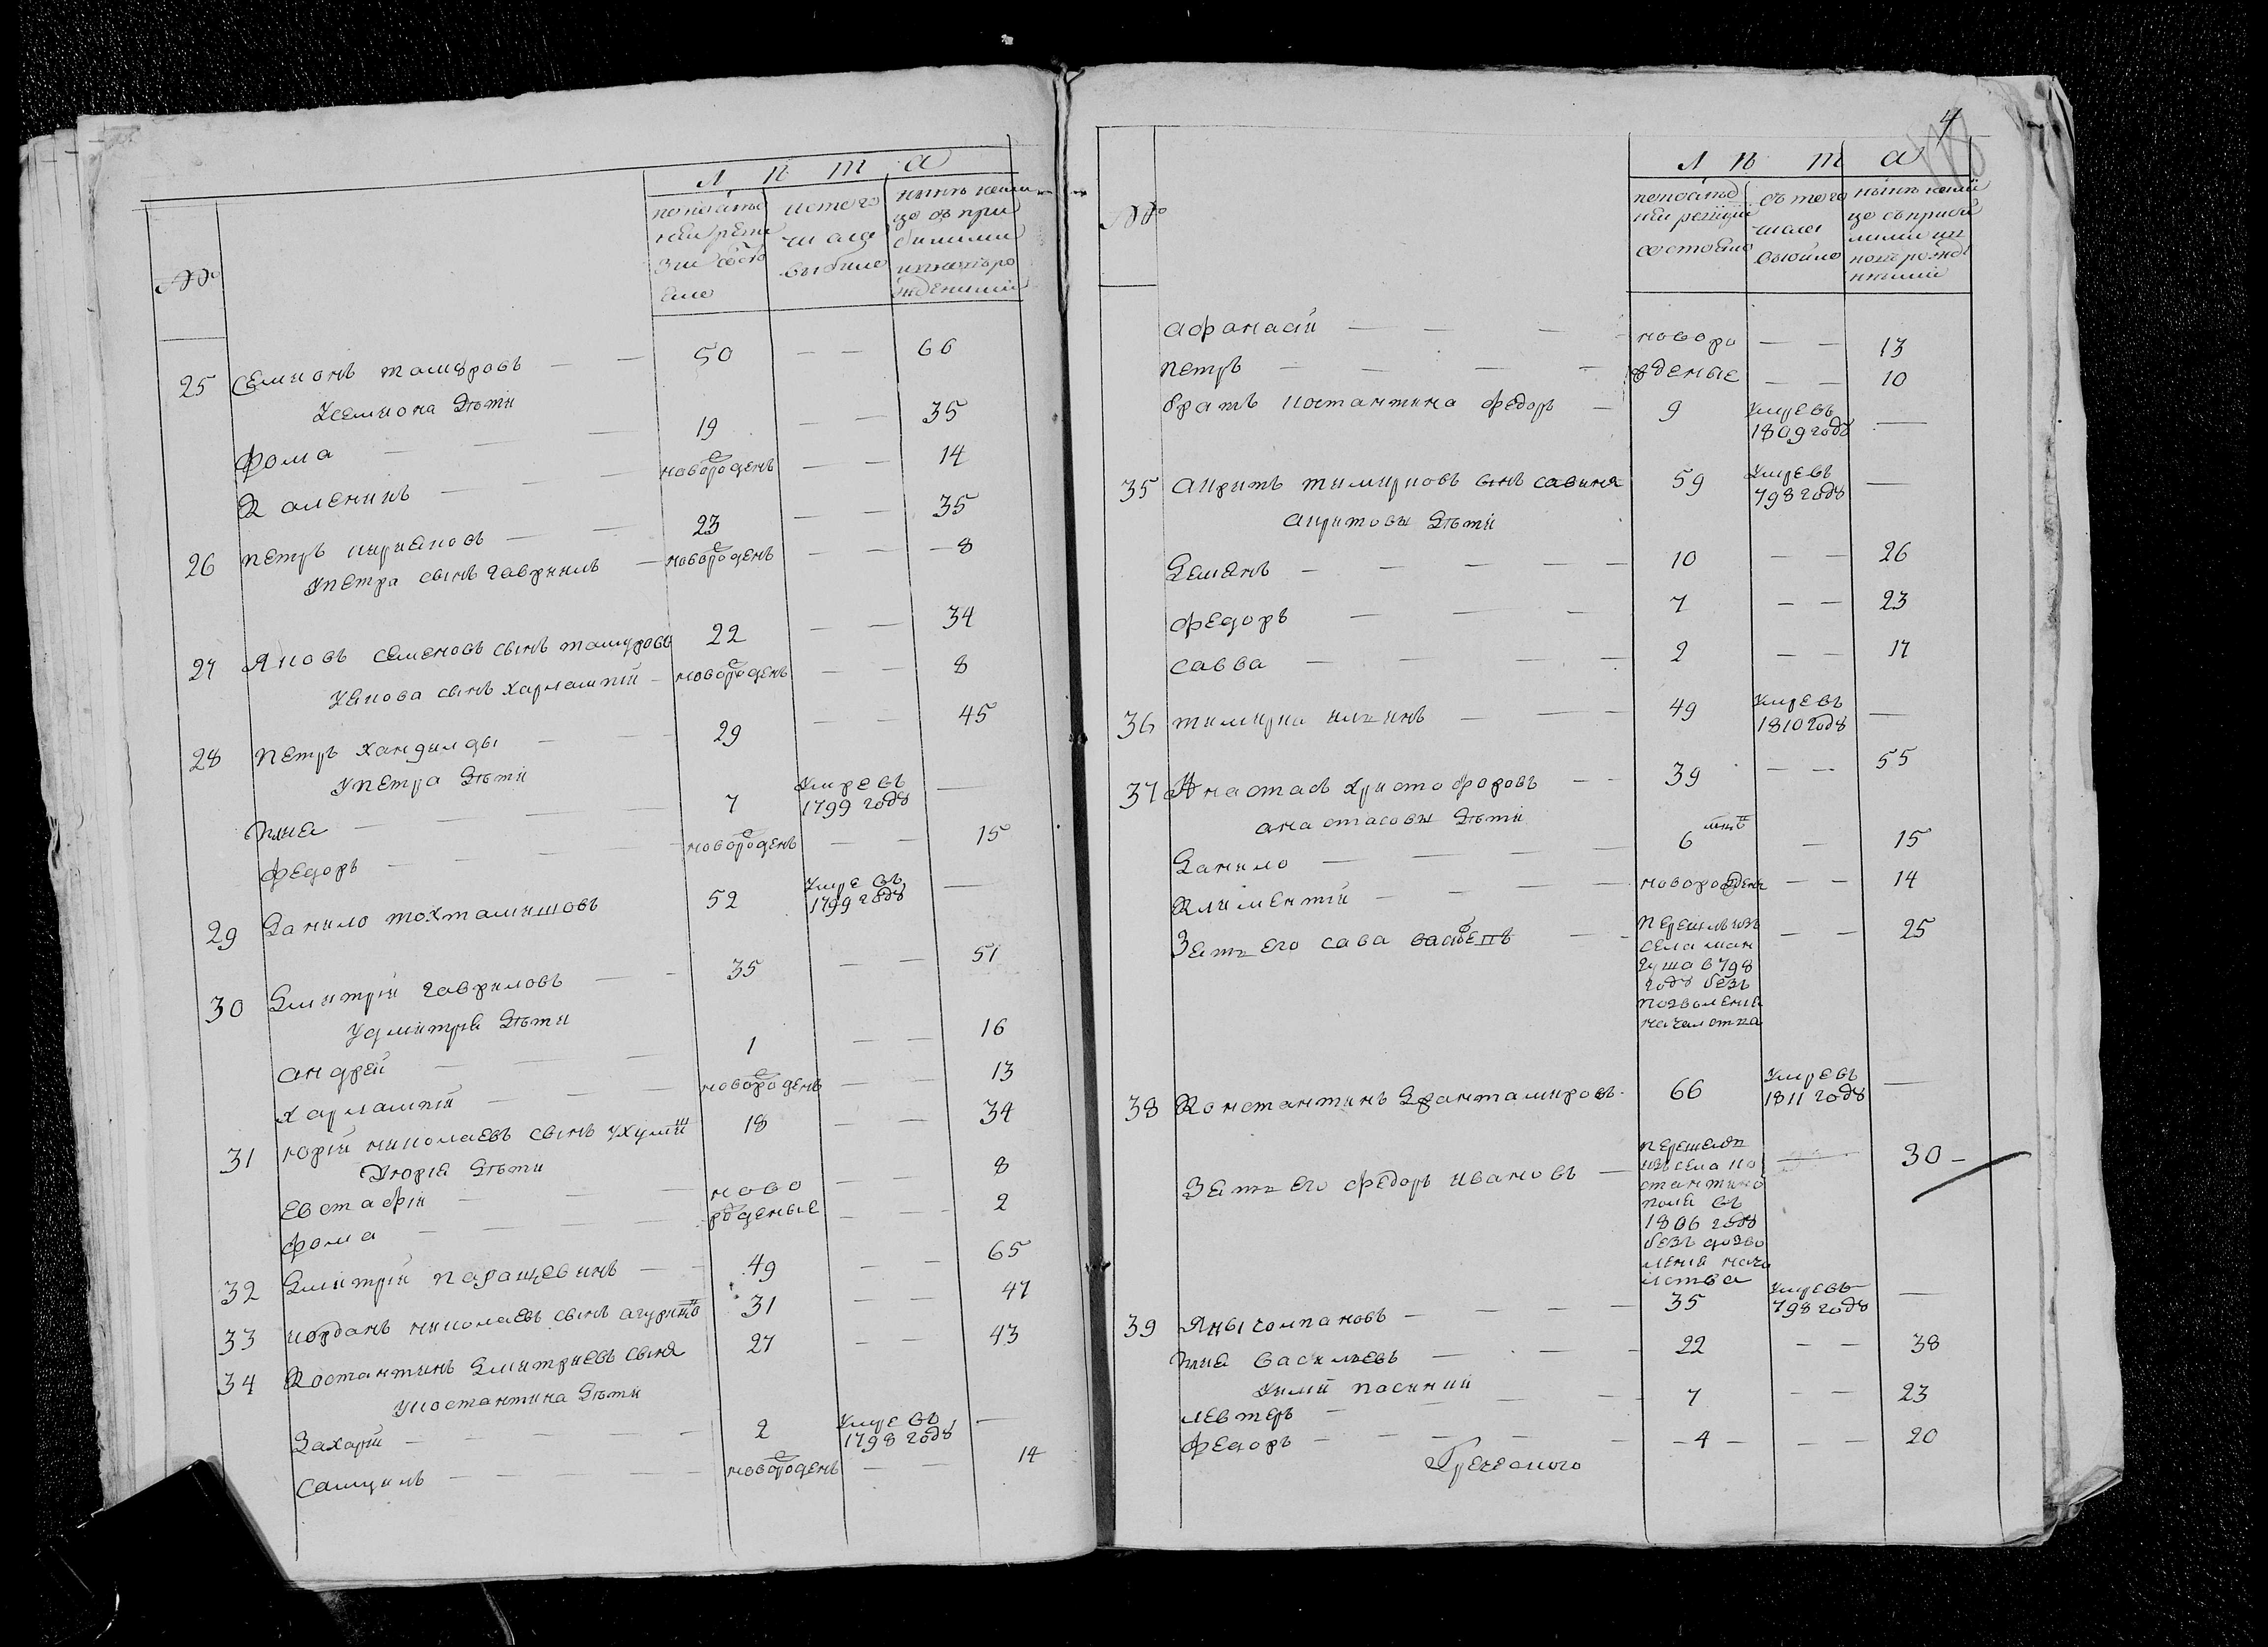 Л ѣ т а
№
попослѣд ней ревизии состояло
истого числа выбыло
нынѣ налицо съ прибылыми и новорожденными
25 Семионъ томуровъ — 50 — — 66
Усемиона дѣти
Фома — 19 — — 35
Каленикъ — новороденъ — — 14
26 Петръ кириановъ — 23 — — 35
Упетра сынъ гавриилъ — новороденъ — — 8
27 Яковъ семеновъ сынъ томуровъ 22 — — 34
Уякова сынъ харлампий — новороденъ — — 8
28 Петръ хандилды — 29 — — 45
Упетра дѣти
Илия — 7 Умре въ 1799 годȣ —
Федоръ — новороденъ — — 15
29 Данило тохтамишовъ 52 Умре въ 1799 годȣ —
30 Дмитрий гавриловъ — 35 — — 51
Удмитрия дѣти
андрей — 1 — — 16
харлампий — новороденъ — — 13
31 юрий николаевъ сынъ 18 — — 34
Уюрия дѣти
евстафий — ново — — 8
фома — роденые — — 2
32 Дмитрий паращевинъ — 49 — — 65
33 иорданъ николаевъ сынъ 31 — — 47
34 Костантинъ дмитриевъ сына 27 — — 43
Укостантина дѣти
Захарий — 2 Умре въ 1798 годȣ —
Самуилъ — новороденъ — — 14
4
Л ѣ т а
№
попослѣд ней ревизии состояло
съ того числа выбыло
нынѣ налицо съ прибылыми и новорожденными
афанасий — новоро — — 13
петръ — жденые — — 10
братъ костантина федоръ — 9 Умре въ 1809 годȣ —
35 апритъ тимирковъ сынъ савина 59 Умре въ 798 годȣ —
апритовы дѣти
Демянъ — 10 — — 26
федоръ — 7 — — 23
савва — 2 — — 17
36 тимирка — 49 Умре въ 1810 годȣ —
37 Анастасъ христофоровъ — 39 — — 55
анастасовы дѣти
Данило — 6 — 15
Климентий — новорожденъ — — 14
Зять его сава — перешлъ изъ села мангуша в 798 годȣ безъ позволения началства — — 25
38 Константинъ — 66 Умре въ 1811 годȣ —
Зять его федоръ ивановъ — перешелъ изъ села костантинополя въ 1806 годȣ безъ дозволения началства — 30 —
39 — 35 Умре въ 798 годȣ —
Илия василевъ — 22 — — 38
Уилии пасинки
левтеръ — 7 — — 23
федоръ — 4 — — 20
Греческого